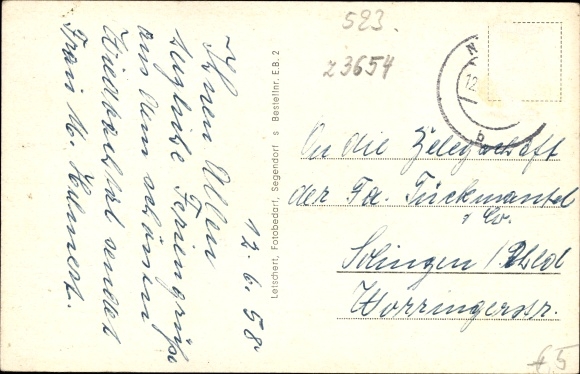 523.
z 3654
12.6.58
Ihnen Allen
herzliche Feriengrüße
aus dem schönen
Wiedbachtal sendet
Frau M.
Letschert, Fotobedarf, Segendorf s Bestellnr. E.B. 2
N
12.
b
An die Belegschaft
der Fa. Tückmantel
& Co.
Solingen / Wald
Worringerstr.
€ 5